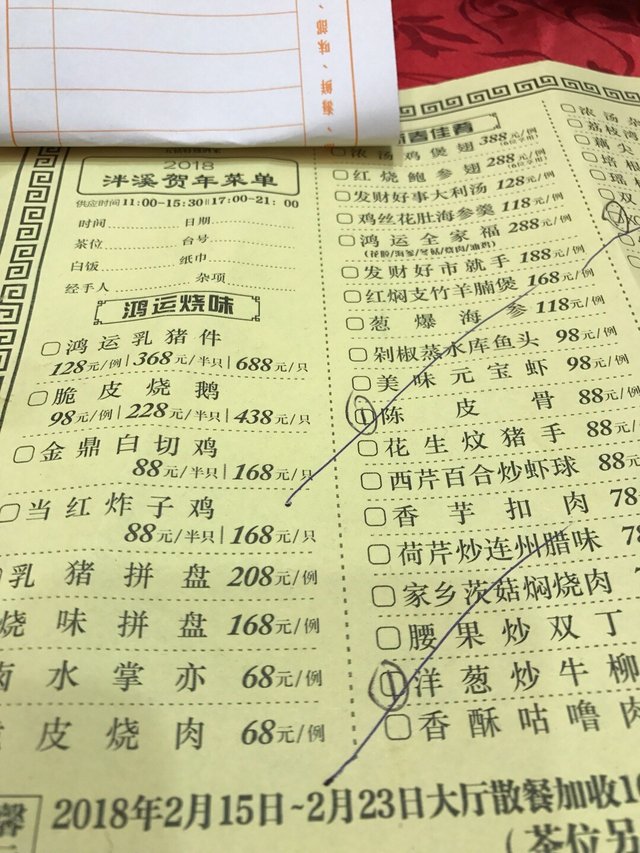 海鲜、味部
2018
泮溪贺年菜单
供应时间11:00-15:30||17:00-21:00
时间 日期
茶位 台号
白饭 纸巾
经手人 杂项
鸿运烧味
鸿运乳猪件
128元/例|368元/半只|688元/只
脆皮烧鹅
98元/例|228元/半只|438元/只
金鼎白切鸡
88元/半只|168元/只
当红炸子鸡
88元/半只|168元/只
乳猪拼盘 208元/例
烧味拼盘 168元/例
卤水掌亦 68元/例
皮烧肉 68元/例
春佳肴
浓汤鸡煲翅 388元/例
(6位享用)
红烧鲍参翅 288元/例
(6位享用)
发财好事大利汤 128元/例
鸡丝花肚海参羹 118元/例
鸿运全家福 288元/例
(花胶/海参/冬菇/烧肉/油鸡)
发财好市就手 188元/例
红焖支竹羊腩煲 168元/例
葱爆海参 118元/例
剁椒蒸水库鱼头 98元/例
美味元宝虾 98元/例
陈皮骨 88元/例
花生炆猪手 88元/例
西芹百合炒虾球 88元
香芋扣肉 78
荷芹炒连州腊味 78
家乡茨菇焖烧肉
腰果炒双丁
洋葱炒牛柳
香酥咕噜肉
浓汤
荔枝湾
藕
培
瑶
双
2018年2月15日~2月23日大厅散餐加收10
(茶位另